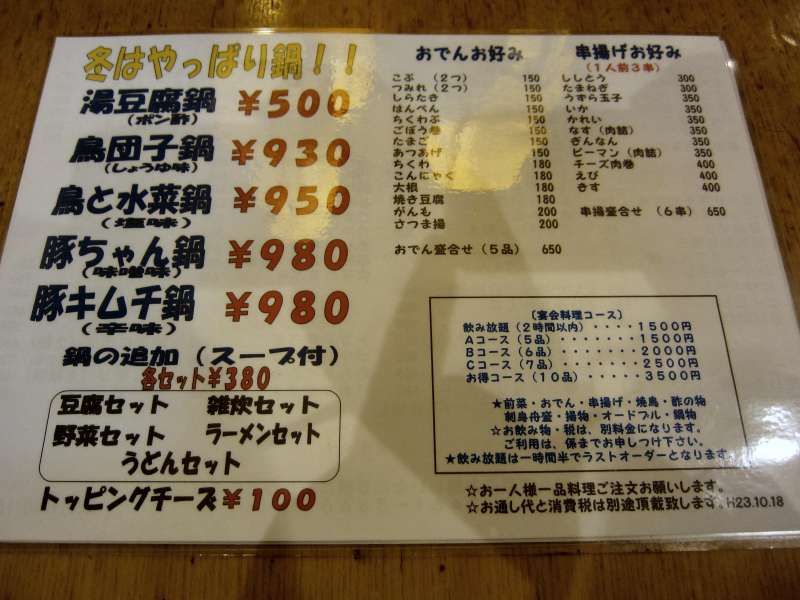 冬はやっぱり鍋！！
湯豆腐鍋 ￥500
（ポン酢）
鳥団子鍋 ￥930
（しょうゆ味）
鳥と水菜鍋 ￥950
（塩味）
豚ちゃん鍋 ￥980
（味噌味）
豚キムチ鍋 ￥980
（辛味）
鍋の追加（スープ付）
各セット￥380
豆腐セット 雑炊セット
野菜セット ラーメンセット
うどんセット
トッピングチーズ￥100
おでんお好み
こぶ （2つ） 150
つみれ （2つ） 150
しらたき 150
はんぺん 150
ちくわぶ 150
ごぼう巻 150
たまご 150
あつあげ 150
ちくわ 180
こんにゃく 180
大根 180
焼き豆腐 180
がんも 200
さつま揚 200
おでん盛合せ（5品） 650
串揚げお好み
（1人前3串）
ししとう 300
たまねぎ 300
うずら玉子 350
いか 350
かれい 350
なす（肉詰） 350
ぎんなん 350
ピーマン（肉詰） 350
チーズ肉巻 400
えび 400
きす 400
串揚盛合せ （6串） 650
〔宴会料理コース〕
飲み放題（2時間以内）・・・・1500円
Aコース（5品）・・・・・・・1500円
Bコース（6品）・・・・・・・2000円
Cコース（7品）・・・・・・・2500円
お得コース（10品）・・・・・3500円
★前菜・おでん・串揚げ・焼鳥・酢の物
刺身舟盛・揚物・オードブル・鍋物
☆お飲み物・税は、別料金になります。
ご利用は、係までお申しつけ下さい。
★飲み放題は一時間半でラストオーダーとなります。
☆お一人様一品料理ご注文お願いします。
☆お通し代と消費税は別途頂戴致します。H23.10.18